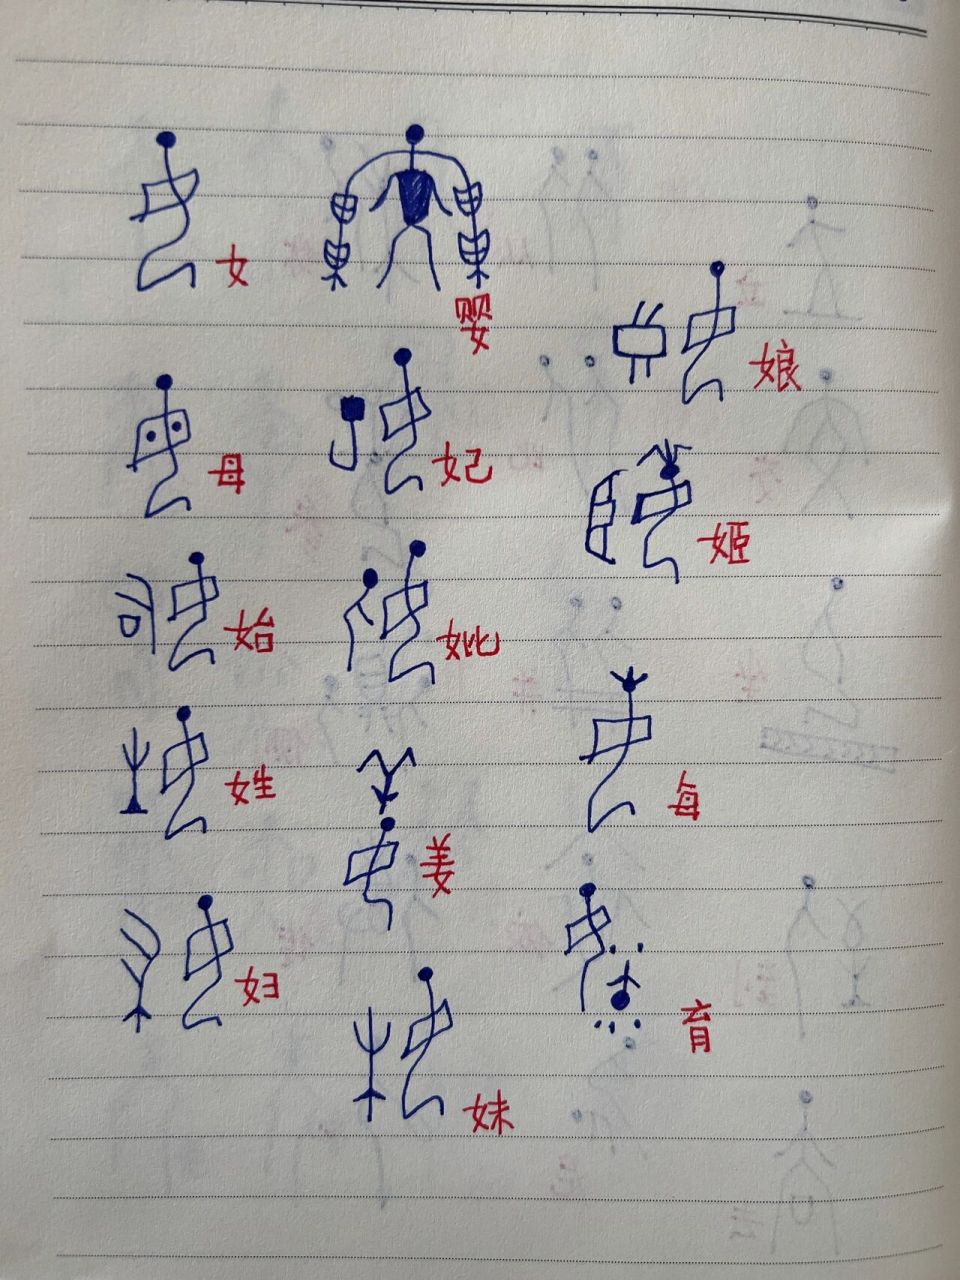 女
婴
娘
母
妃
姬
始
妣
姓
姜
每
妇
育
妹